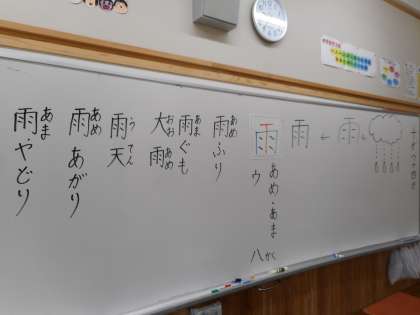 雨
雨
あめ・あま
ウ
八かく
あめ
雨ふり
あま
雨ぐも
おおあめ
大雨
うてん
雨天
あめ
雨あがり
あま
雨やどり